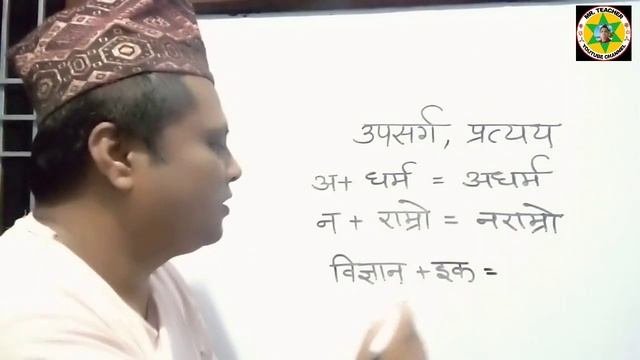 MR. TEACHER
YOUTUBE CHANNEL
उपसर्ग, प्रत्यय
अ + धर्म = अधर्म
न + राम्रो = नराम्रो
विज्ञान + इक =